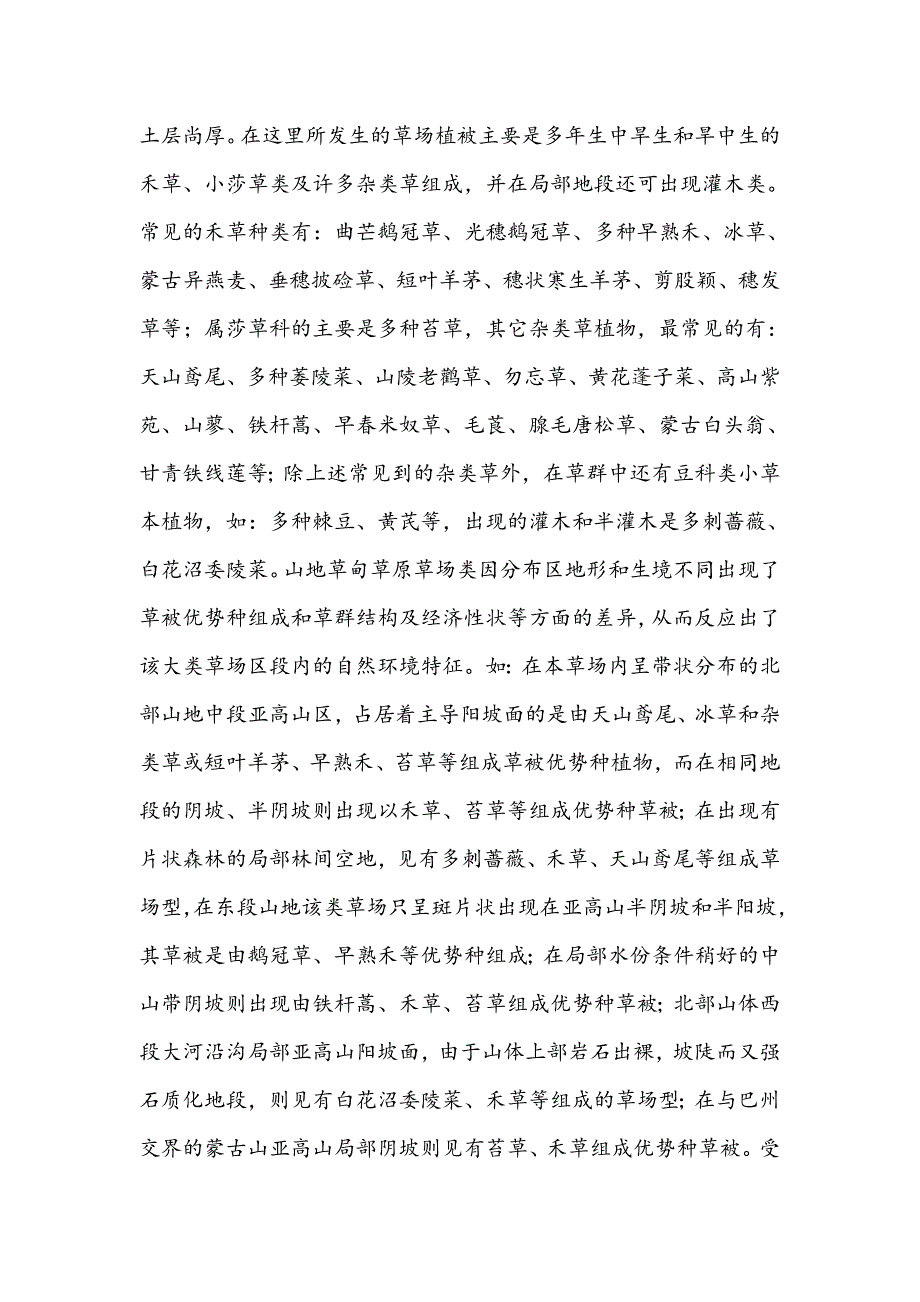 土层尚厚。在这里所发生的草场植被主要是多年生中旱生和旱中生的
禾草、小莎草类及许多杂类草组成，并在局部地段还可出现灌木类。
常见的禾草种类有：曲芒鹅冠草、光穗鹅冠草、多种早熟禾、冰草、
蒙古异燕麦、垂穗披硷草、短叶羊茅、穗状寒生羊茅、剪股颖、穗发
草等；属莎草科的主要是多种苔草，其它杂类草植物，最常见的有：
天山鸢尾、多种萎陵菜、山陵老鹳草、勿忘草、黄花蓬子菜、高山紫
苑、山蓼、铁杆蒿、早春米奴草、毛茛、腺毛唐松草、蒙古白头翁、
甘青铁线莲等；除上述常见到的杂类草外，在草群中还有豆科类小草
本植物，如：多种棘豆、黄芪等，出现的灌木和半灌木是多刺蔷薇、
白花沼委陵菜。山地草甸草原草场类因分布区地形和生境不同出现了
草被优势种组成和草群结构及经济性状等方面的差异，从而反应出了
该大类草场区段内的自然环境特征。如：在本草场内呈带状分布的北
部山地中段亚高山区，占居着主导阳坡面的是由天山鸢尾、冰草和杂
类草或短叶羊茅、早熟禾、苔草等组成草被优势种植物，而在相同地
段的阴坡、半阴坡则出现以禾草、苔草等组成优势种草被；在出现有
片状森林的局部林间空地，见有多刺蔷薇、禾草、天山鸢尾等组成草
场型，在东段山地该类草场只呈斑片状出现在亚高山半阴坡和半阳坡，
其草被是由鹅冠草、早熟禾等优势种组成；在局部水份条件稍好的中
山带阴坡则出现由铁杆蒿、禾草、苔草组成优势种草被；北部山体西
段大河沿沟局部亚高山阳坡面，由于山体上部岩石出裸，坡陡而又强
石质化地段，则见有白花沼委陵菜、禾草等组成的草场型；在与巴州
交界的蒙古山亚高山局部阴坡则见有苔草、禾草组成优势种草被。受